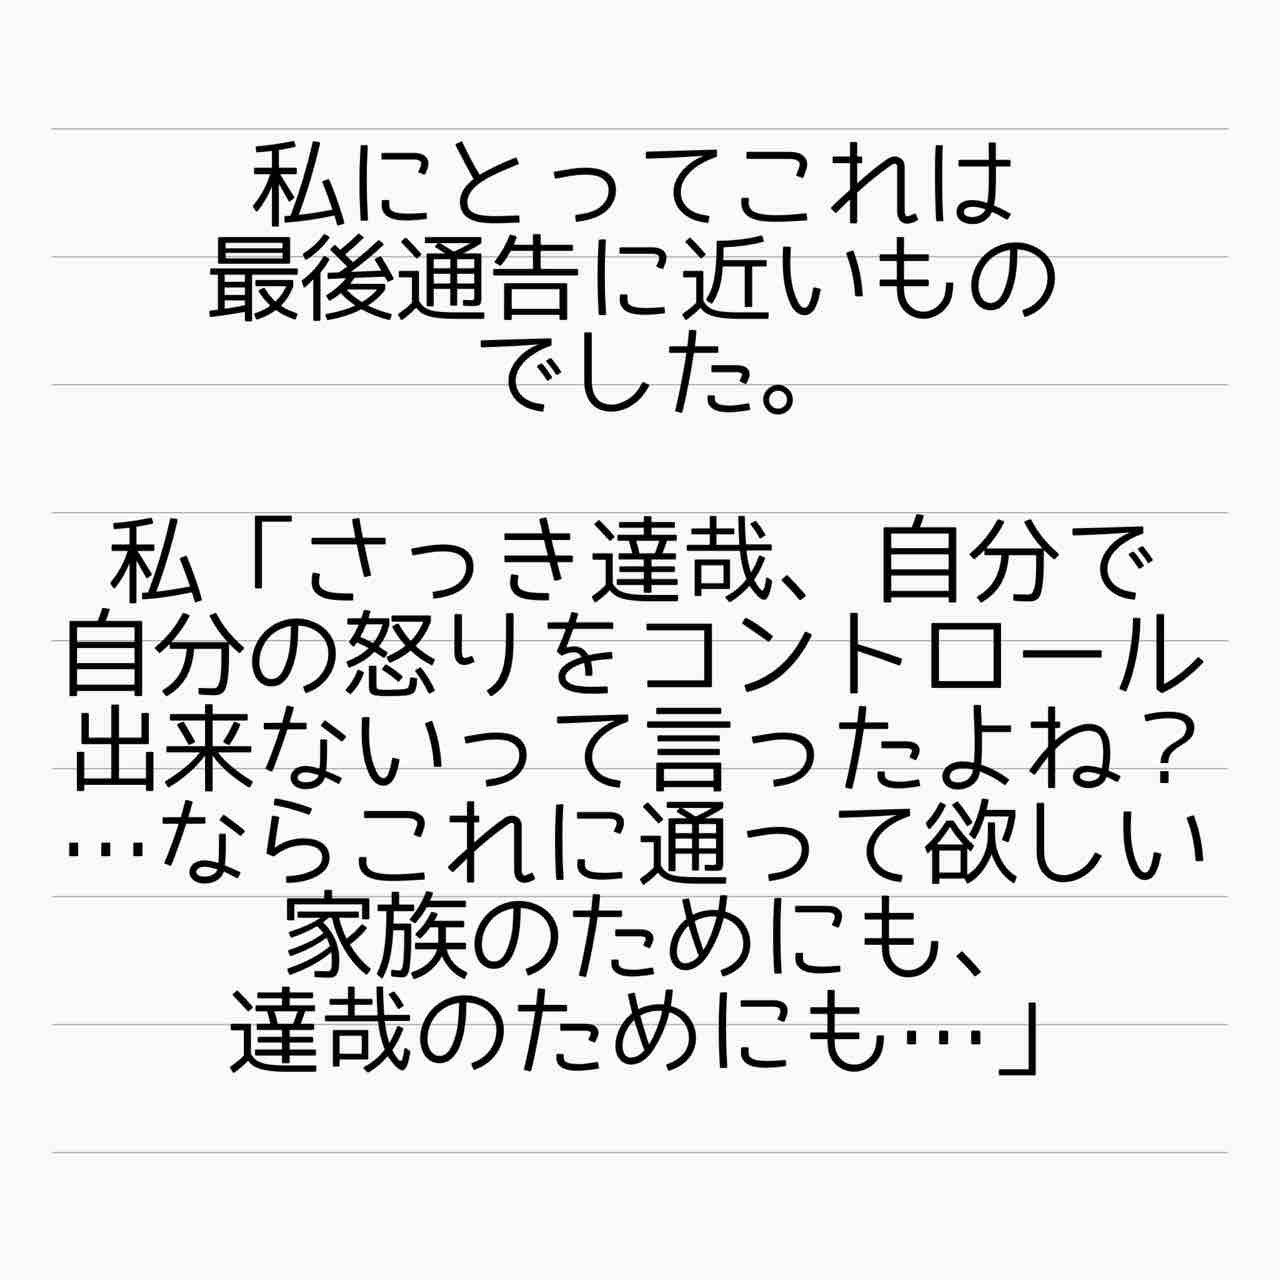 私にとってこれは
最後通告に近いもの
でした。
私「さっき達哉、自分で
自分の怒りをコントロール
出来ないって言ったよね？
…ならこれに通って欲しい
家族のためにも、
達哉のためにも…」